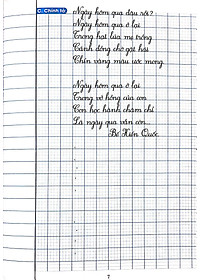 C. Chính tả
Ngày hôm qua đâu rồi?
Ngày hôm qua ở lại
Trong hạt lúa mẹ trồng
Cánh đồng chờ gặt hái
Chín vàng màu ước mong.
Ngày hôm qua ở lại
Trong vở hồng của con
Con học hành chăm chỉ
Là ngày qua vẫn còn...
Bế Kiến Quốc
7